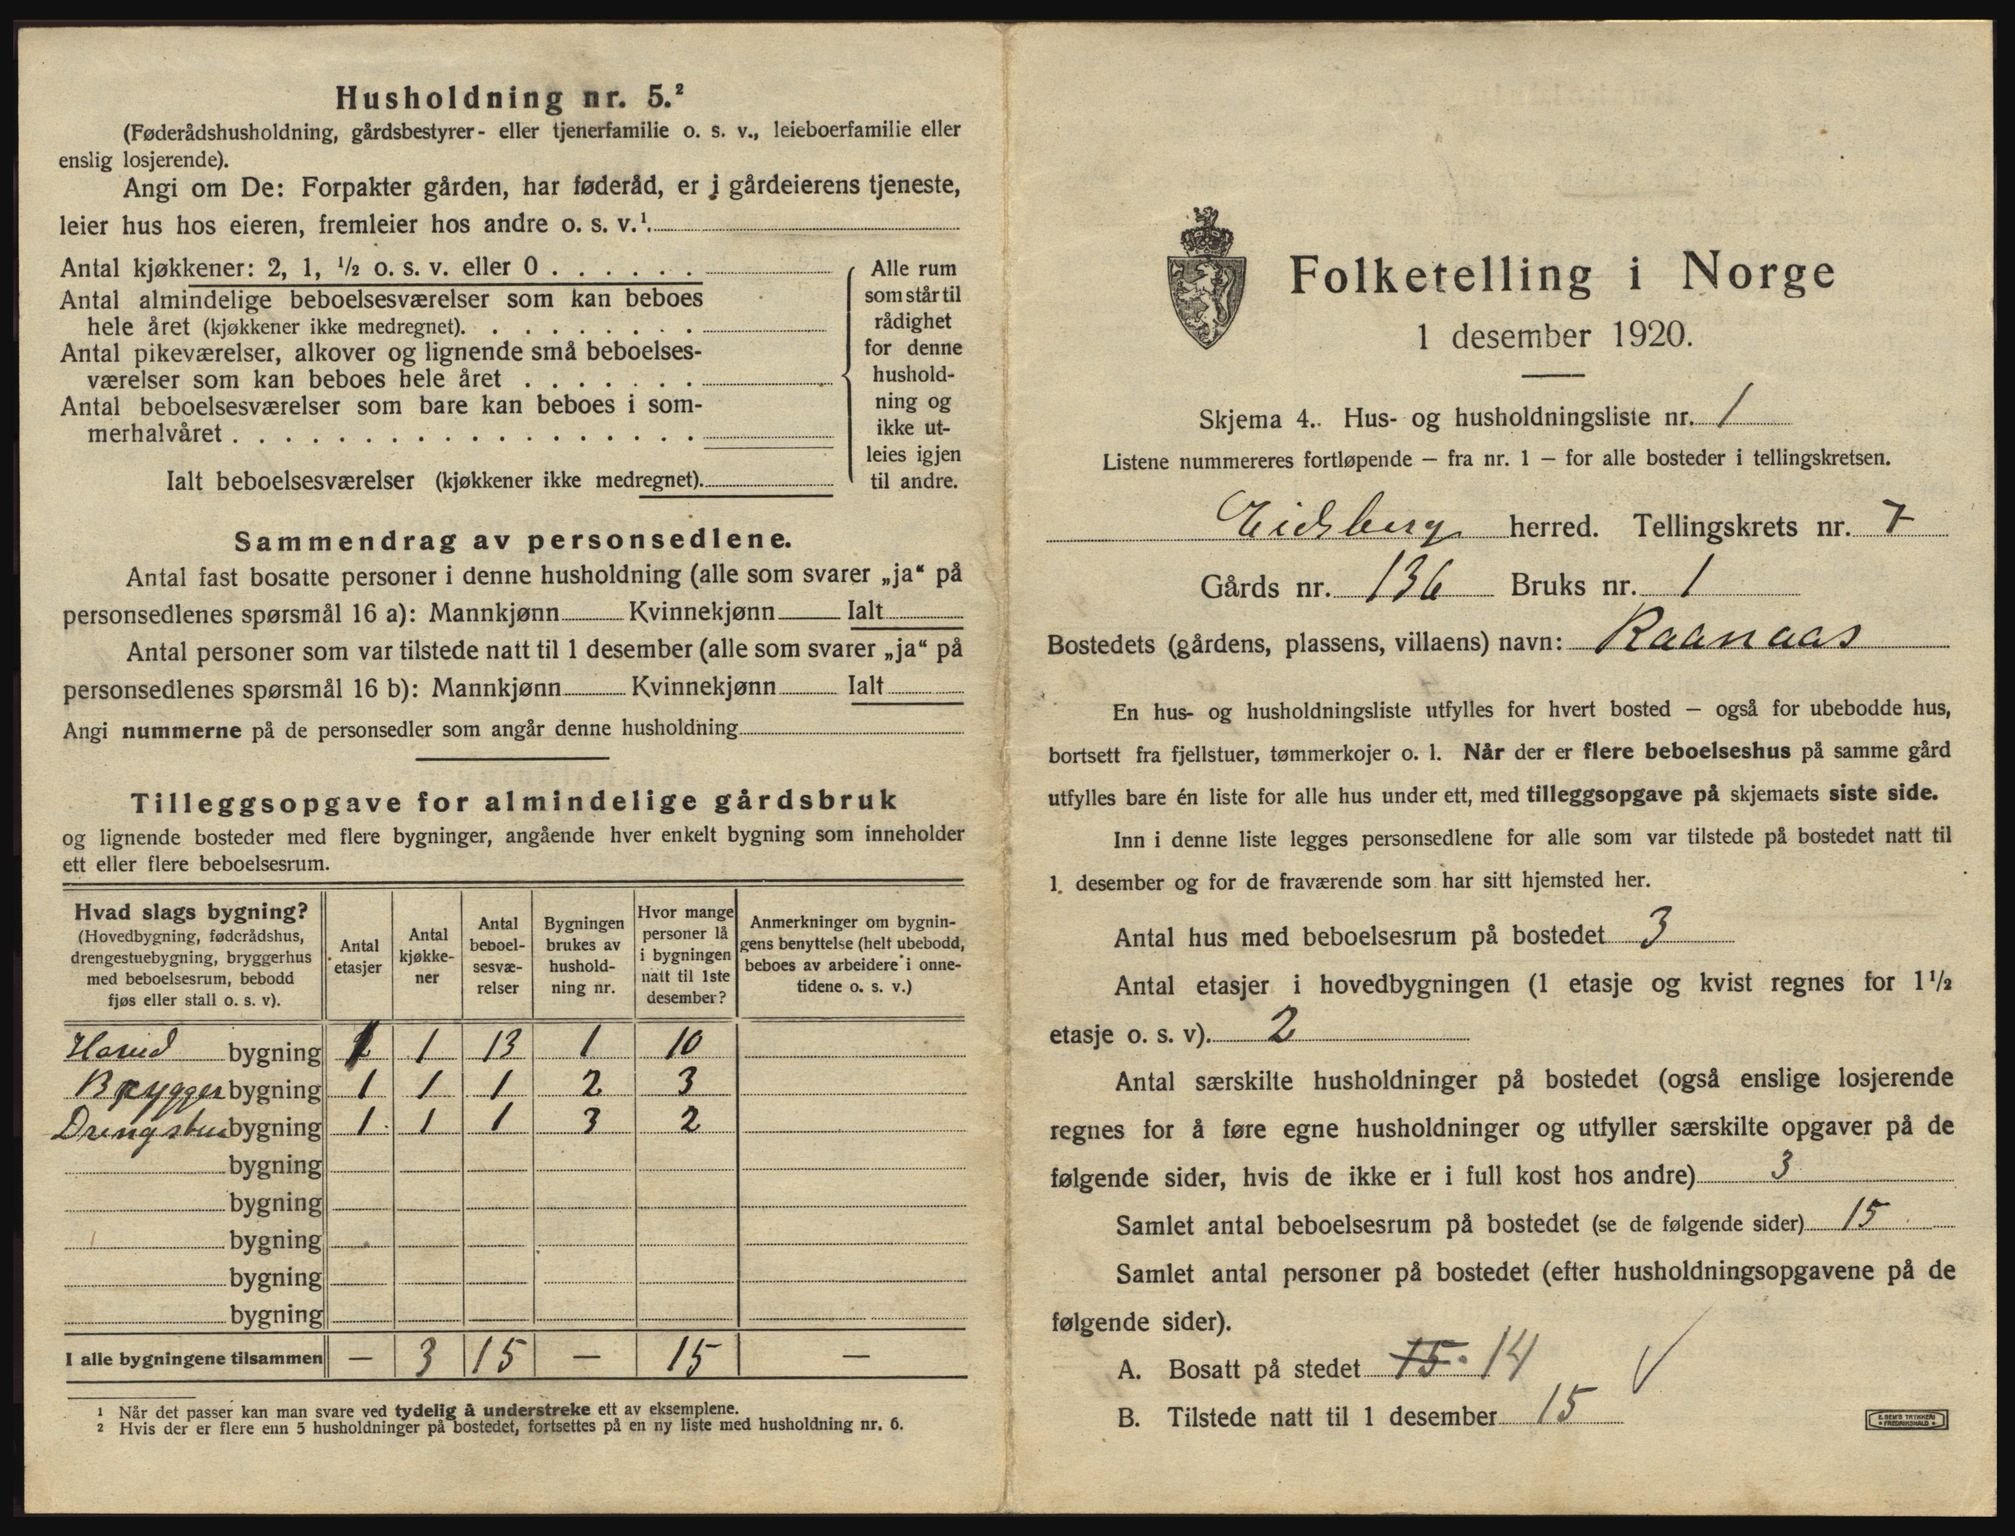 Husholdning nr. 5.²
(Føderådshusholdning, gårdsbestyrer- eller tjenerfamilie o. s. v., leieboerfamilie eller
enslig losjerende).
Angi om De: Forpakter gården, har føderåd, er i gårdeierens tjeneste,
leier hus hos eieren, fremleier hos andre o. s. v.¹.
Antal kjøkkener: 2, 1, ½ o. s. v. eller 0 . . . . . .
Antal almindelige beboelsesværelser som kan beboes
hele året (kjøkkener ikke medregnet). . . . . . . . .
Antal pikeværelser, alkover og lignende små beboelses-
værelser som kan beboes hele året . . . . . . .
Antal beboelsesværelser som bare kan beboes i som-
merhalvåret . . . . . . . . . . . . . . . . . .
Ialt beboelsesværelser (kjøkkener ikke medregnet).
Alle rum
som står til
rådighet
for denne
hushold-
ning og
ikke ut-
leies igjen
til andre.
Sammendrag av personsedlene.
Antal fast bosatte personer i denne husholdning (alle som svarer „ja“ på
personsedlenes spørsmål 16 a): Mannkjønn Kvinnekjønn Ialt
Antal personer som var tilstede natt til 1 desember (alle som svarer „ja“ på
personsedlenes spørsmål 16 b): Mannkjønn Kvinnekjønn Ialt
Angi nummerne på de personsedler som angår denne husholdning
Tilleggsopgave for almindelige gårdsbruk
og lignende bosteder med flere bygninger, angående hver enkelt bygning som inneholder
ett eller flere beboelsesrum.
Hvad slags bygning?
(Hovedbygning, føderådshus,
drengestuebygning, bryggerhus
med beboelsesrum, bebodd
fjøs eller stall o. s. v).
Antal
etasjer
Antal
kjøkke-
ner
Antal
beboel-
sesvæ-
relser
Bygningen
brukes av
hushold-
ning nr.
Hvor mange
personer lå
i bygningen
natt til 1ste
desember?
Anmerkninger om bygnin-
gens benyttelse (helt ubebodd,
beboes av arbeidere i onne-
tidene o. s. v.)
Hoved bygning 2 1 13 1 10
Brygger bygning 1 1 1 2 3
Drengstue bygning 1 1 1 3 2
bygning
bygning
bygning
bygning
bygning
I alle bygningene tilsammen — 3 15 — 15 —
¹ Når det passer kan man svare ved tydelig å understreke ett av eksemplene.
² Hvis der er flere enn 5 husholdninger på bostedet, fortsettes på en ny liste med husholdning nr. 6.
Folketelling i Norge
1 desember 1920.
Skjema 4. Hus- og husholdningsliste nr. 1
Listene nummereres fortløpende — fra nr. 1 — for alle bosteder i tellingskretsen.
Eidsberg herred. Tellingskrets nr. 7
Gårds nr. 136 Bruks nr. 1
Bostedets (gårdens, plassens, villaens) navn: Raanaas
En hus- og husholdningsliste utfylles for hvert bosted — også for ubebodde hus,
bortsett fra fjellstuer, tømmerkojer o. l. Når der er flere beboelseshus på samme gård
utfylles bare én liste for alle hus under ett, med tilleggsopgave på skjemaets siste side.
Inn i denne liste legges personsedlene for alle som var tilstede på bostedet natt til
1. desember og for de fraværende som har sitt hjemsted her.
Antal hus med beboelsesrum på bostedet 3
Antal etasjer i hovedbygningen (1 etasje og kvist regnes for 1½
etasje o. s. v). 2
Antal særskilte husholdninger på bostedet (også enslige losjerende
regnes for å føre egne husholdninger og utfyller særskilte opgaver på de
følgende sider, hvis de ikke er i full kost hos andre) 3
Samlet antal beboelsesrum på bostedet (se de følgende sider) 15
Samlet antal personer på bostedet (efter husholdningsopgavene på de
følgende sider).
A. Bosatt på stedet 15. 14
B. Tilstede natt til 1 desember 15
E. SEM'S TRYKKERI
FREDRIKSHALD